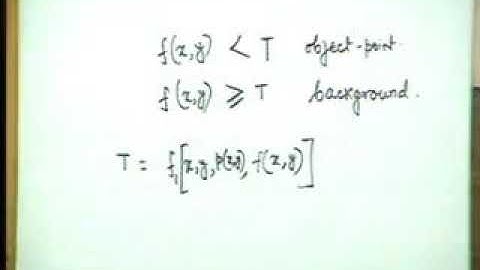 f(x,y) < T object-point.
f(x,y) ⩾ T background.
T = f₁[x,y,p(x,y),f(x,y)]